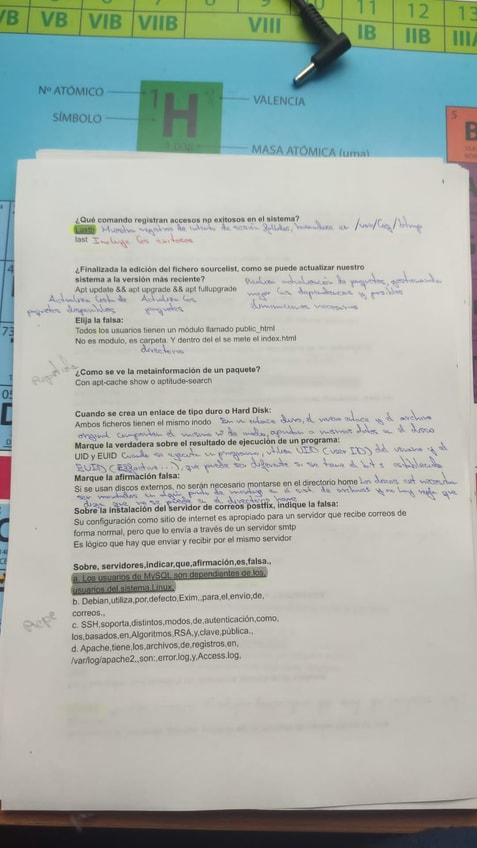 VB VB VIB VIIB VIII 11 12 13
IB IIB IIIA
Nº ATÓMICO 1 H VALENCIA
SÍMBOLO
MASA ATÓMICA (uma)
5
B
¿Qué comando registran accesos np exitosos en el sistema?
Lastb Muestra registros de intento de sesión fallidos, basandose en /var/log/btmp
last Incluye los exitosos
¿Finalizada la edición del fichero sourcelist, como se puede actualizar nuestro
sistema a la versión más reciente?
Apt update && apt upgrade && apt fullupgrade
Realiza actualización de paquetes, gestionando
mejor las dependencias y posibles
Actualiza lista de
paquetes disponibles
Actualiza los
paquetes
Elija la falsa:
Todos los usuarios tienen un módulo llamado public_html
No es modulo, es carpeta. Y dentro del el se mete el index.html
directorio
¿Como se ve la metainformación de un paquete?
Con apt-cache show o aptitude-search
Cuando se crea un enlace de tipo duro o Hard Disk:
Ambos ficheros tienen el mismo inodo En un enlace duro, el nuevo enlace y el archivo
original comparten el mismo nº de inodo, apuntan a mismos datos en el disco
Marque la verdadera sobre el resultado de ejecución de un programa:
UID y EUID Cuando se ejecuta un programa, utiliza UID (User ID) del usuario y el
EUID (Effective...), que puede ser diferente si se
Marque la afirmación falsa:
Si se usan discos externos, no serán necesario montarse en el directorio home Los discos ext necesitan
ser montados en algún punto de montaje en el sist. de archivos y no hay regla que
diga que no se pueda en el directorio home
Sobre la instalación del servidor de correos postfix, indique la falsa:
Su configuración como sitio de internet es apropiado para un servidor que recibe correos de
forma normal, pero que lo envía a través de un servidor smtp
Es lógico que hay que enviar y recibir por el mismo servidor
Sobre, servidores,indicar,que,afirmación,es,falsa.,
a. Los usuarios de MySQL son dependientes de los,
usuarios del sistema,Linux,
b. Debian,utiliza,por,defecto,Exim,,para,el,envio,de,
correos.,
c. SSH,soporta,distintos,modos,de,autenticación,como,
los,basados,en,Algoritmos,RSA,y,clave,pública.,
d. Apache,tiene,los,archivos,de,registros,en,
/var/log/apache2,,son:,error.log,y,Access.log,